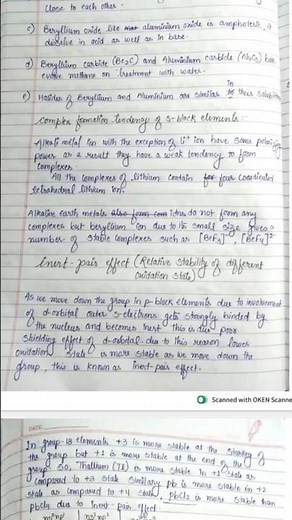 close to each other.
c) Beryllium oxide like aluminium oxide is amphoteric, it
dissolve in acid as well as in base.
d) Beryllium carbide (Be2C) and Aluminium carbide (Al4C3) both
evolve methane on treatment with water.
e) Halides of Beryllium and Aluminium are similar in their
Complex formation tendency of s-block elements
Alkali metal ion with the exception of Li+ ion have some
power as a result they have a weak tendency to form
complexes.
All the complexes of lithium contain four coordinated
tetrahedral lithium ion.
Alkaline earth metals ions do not form any
complexes but beryllium ion due to its small size gives a
number of stable complexes such as [BeF3]- [BeF4]2-
inert-pair effect (Relative stability of different
oxidation state)
As we move down the group in p-block elements due to involvement
of d-orbital outer s-electrons gets strongly binded by
the nucleus and becomes inert this is due poor
shielding effect of d-orbital. due to this reason lower
oxidation state is more stable as we move down the
group, this is known as inert-pair effect.
Scanned with OKEN Scanne
DATE
In group-13 elements +3 is more stable at the starting of
the group but +1 is more stable at the end of the
group so, Thallium (Tl) is more stable in +1 state as
compared to +3 state similarly pb is more stable in +2
state as compared to +4 state, pbCl2 is more stable than
PbCl4 due to inert pair effect